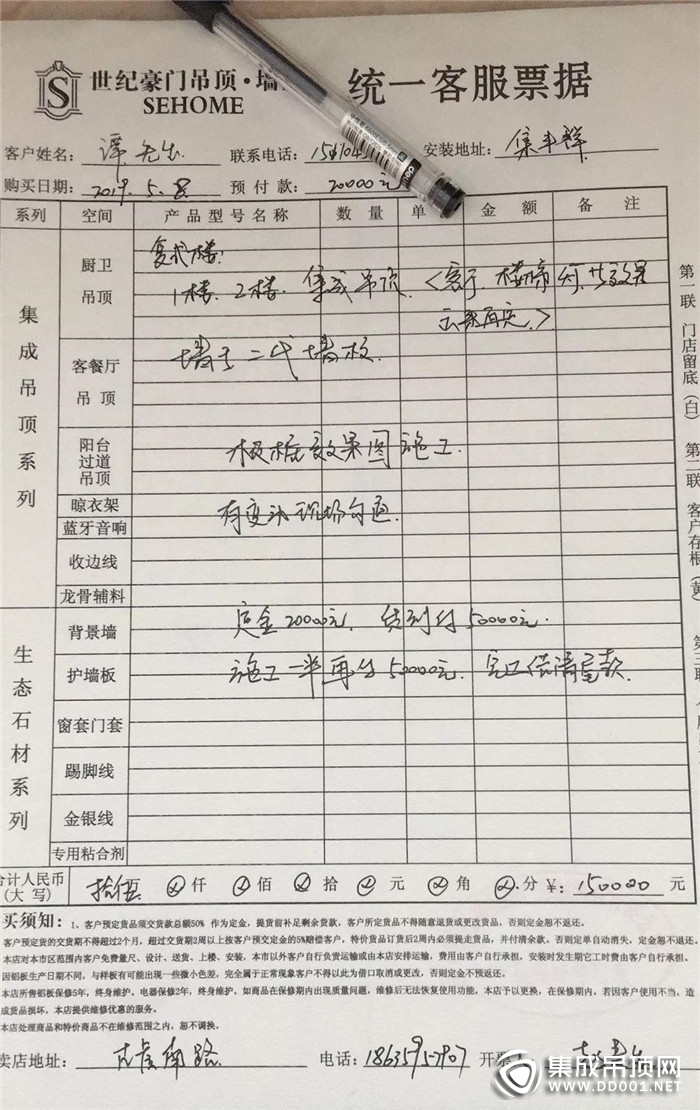 世纪豪门吊顶·墙
SEHOME
统一客服票据
客户姓名：谭先生 联系电话： 安装地址：集丰祥
购买日期：2019.5.8 预付款：20000元
系列 空间 产品型号名称 数量 单 金额 备注
集成吊顶系列
厨卫吊顶
复式楼：
1楼、2楼、集成吊顶、<客厅、楼梯间、
再定>
客餐厅吊顶
墙 二代墙板
阳台过道吊顶
根据效果图施工
晾衣架
有变动现场沟通
蓝牙音响
收边线
龙骨辅料
生态石材系列
背景墙
定金20000元、货到付50000元.
护墙板
施工一半再付50000元、完工付清尾款
窗套门套
踢脚线
金银线
专用粘合剂
合计人民币（大写） 拾伍 仟 佰 拾 元 角 分 ¥：150000元
第一联 门店留底（白） 第二联 客户存根（黄） 第三联
买须知：1、客户预定货品须交货款总额50% 作为定金，提货前补足剩余货款，客户所定货品不得随意退货或更改货品，否则定金恕不返还。
客户预定货的交货期不得超过2个月，超过交货期2周以上按客户预交定金的5%赔偿客户，特价货品订货后2周内必须提走货品，并付清余款，否则定单自动消失，定金恕不返还。
本店对本市区范围内客户免费量尺、设计、送货、上楼、安装，本市以外客户自行负责运输或由本店安排运输，费用由客户自行承担，安装时发生期它工时费由客户自行承担。
因铝板生产日期不同，与样板有可能出现一些微小色差，完全属于正常现象客户不得以此为借口取消或更改，否则定金不预返还。
本店所售铝板保修5年，终身维护。电器保修2年，终身维护。如商品在保修期内出现质量问题，维修后无法恢复使用功能，本店予以更换，在保修期内，若因客户使用不当、造
成货品损坏，本店提供维修优惠的服务。
本店处理商品和特价商品不在维修范围之内，恕不调换。
卖店地址： 电话： 开票人
集成吊顶网
WWW.DD001.NET